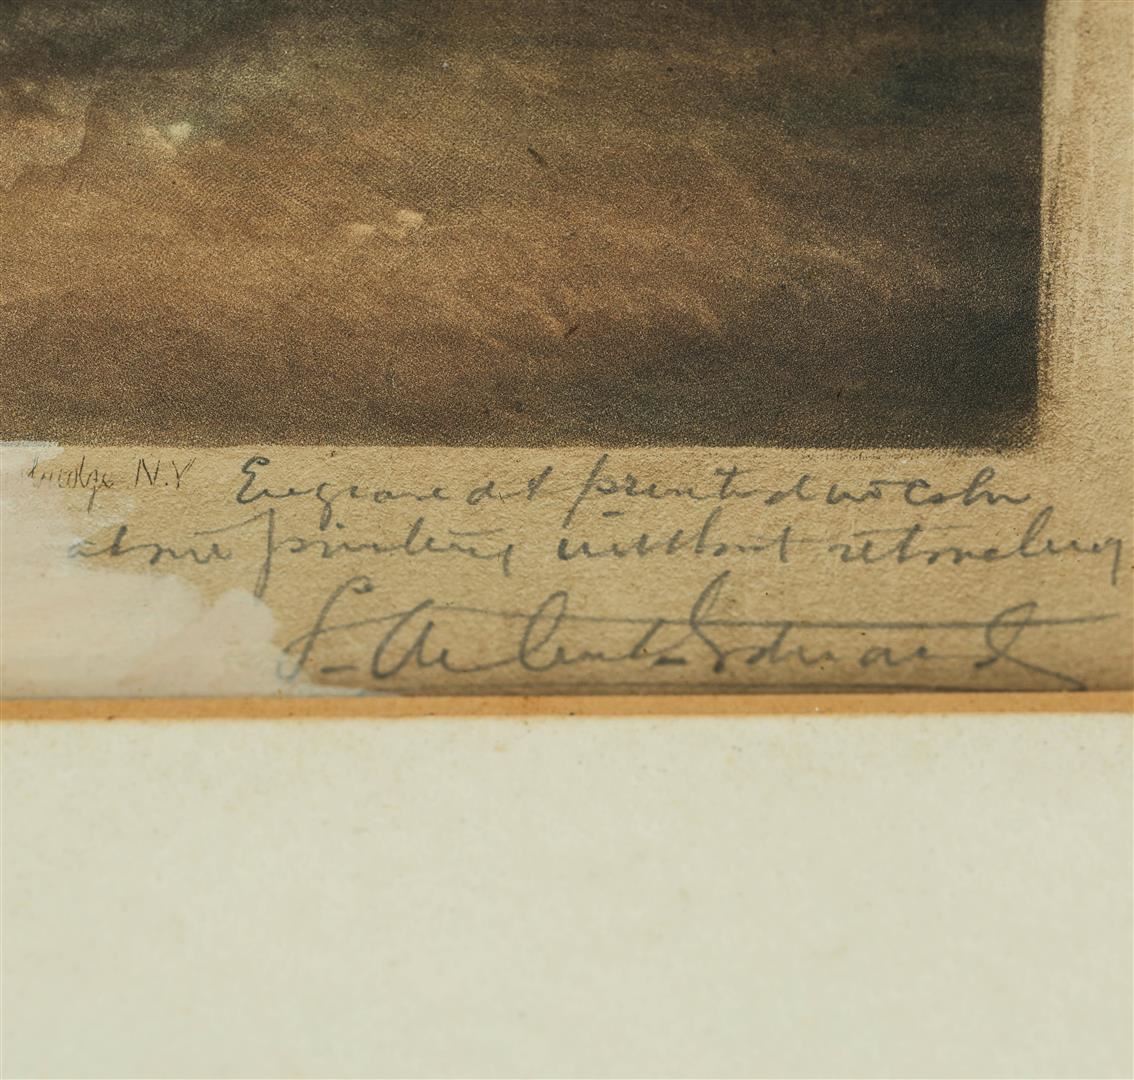 N.Y
Engraved & printed in color
at one printing without retouching
S. Arlent Edwards